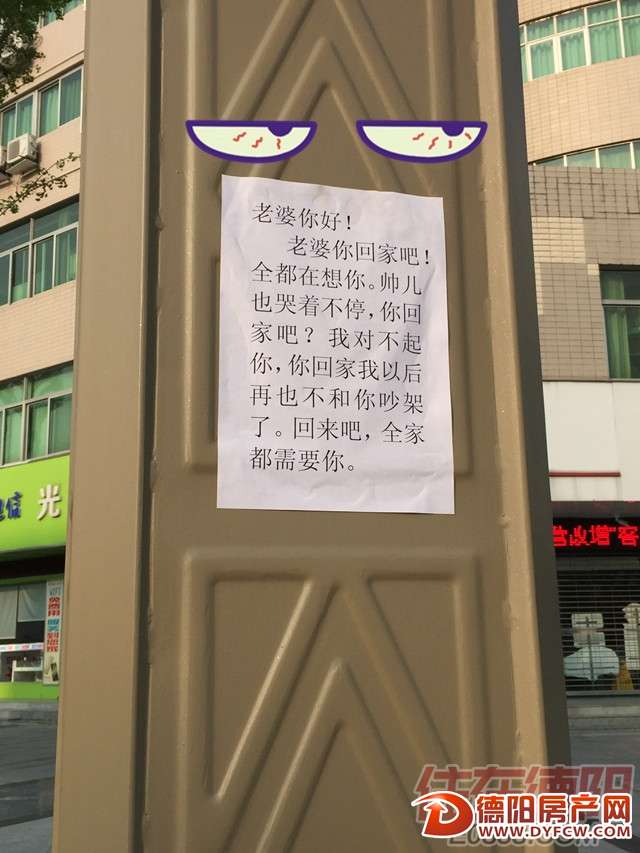 老婆你好！
老婆你回家吧！
全都在想你。帅儿
也哭着不停，你回
家吧？我对不起
你，你回家我以后
再也不和你吵架
了。回来吧，全家
都需要你。
信 光
营改增"客
住在德阳
德阳房产网
WWW.DYFCW.COM